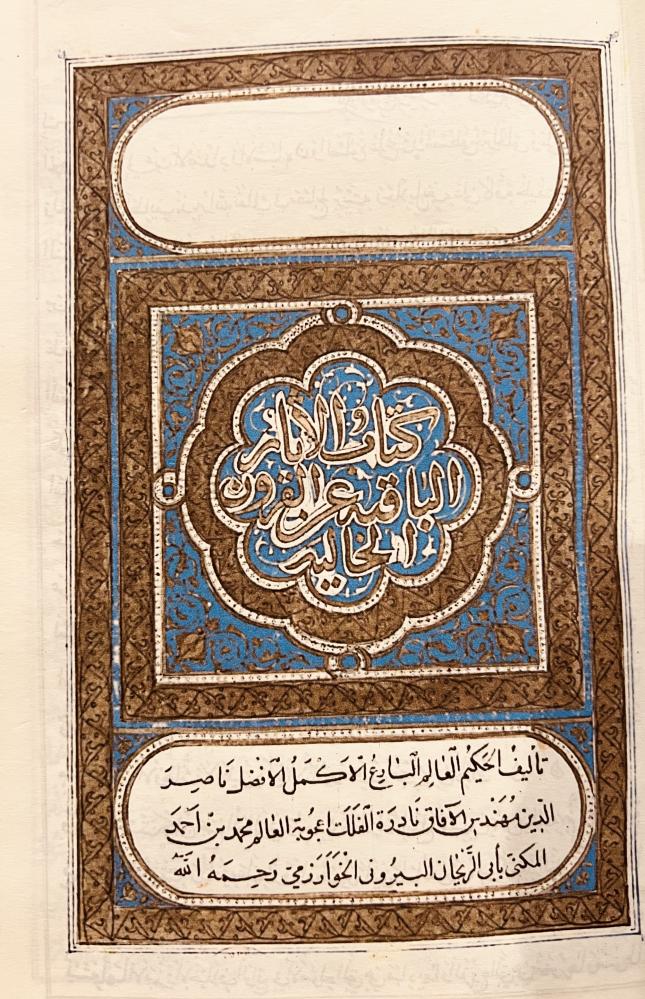 كتاب الآثار
الباقية عن القرون
الخالية
تأليف الحكيم العالم البارع الأكمل الأفضل ناصر
الدين مهندس الآفاق نادرة الفلك اعجوبة العالم محمد بن أحمد
المكنى بأبي الريحان البيروني الخوارزمي رحمه الله